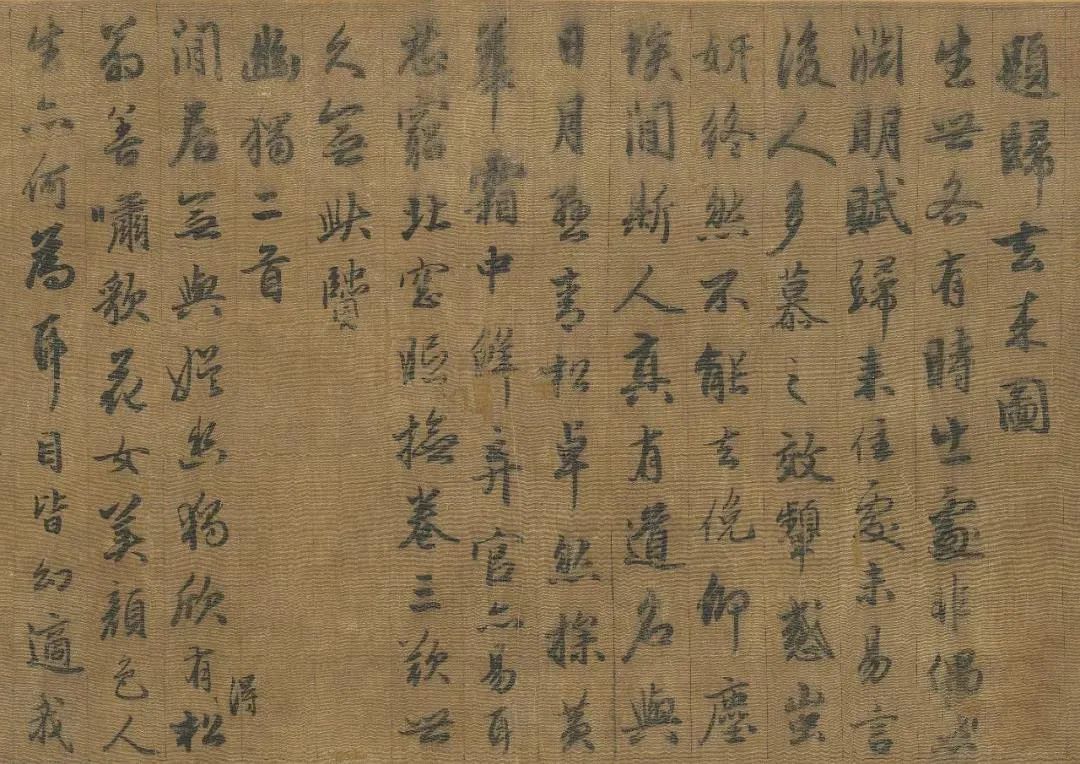 題歸去来圖
生世各有時出處非偶然
淵明賦歸来佳處未易言
後人多慕之效顰惑蚩
妍終然不能去俛仰塵
埃間斯人真有道名與
日月懸青松卓然操黄
華霜中鮮弃官亦易耳
忍窮北窓眠撫卷三歎世
久無此賢
幽獨二首
閒居無與娱幽獨欣有得松
翁善嘯歌花女美顔色人
生亦何為耳目皆幻適我